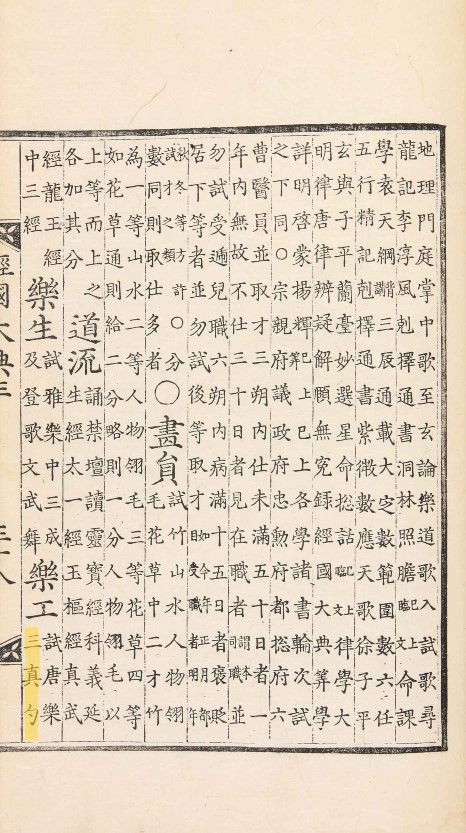 地理門庭掌中歌至玄論樂道歌入試歌尋
龍記李淳風剋擇通書洞林照膽已上臨文命課
學袁天綱三辰通載大定數範圍數六壬
五行精記剋擇通書紫微數應天歌徐子平
玄輿子平蘭臺妙選星命揔話已上臨文律學大
明律唐律辨疑解頤無冤錄經國大典筭學
詳明啓蒙揚輝已上各學諸書輪次試
之下同○宗親府議政府忠勳府都揔府六
曹醫員並取才三朔內仕未滿五十日者一
年內無故不仕三十日者見在職者謂本司職並
勿試受遞兒職六朔內病滿十五日者褒貶
居下等者並勿試後等取才如今年正月都目受職者明年
秋冬等方許試才之類○分○畫員試竹山水人物翎
數同則取仕多者毛花草中二才竹
為一等山水二等人物翎毛三等花草四等
如花草通則給二分略則一分人物翎毛以
上等而上之道流誦禁壇讀靈寶經科義延
各加其分生經太一經玉樞經真武
經龍王經樂生試雅樂中三成樂工試唐樂
中三經及登歌文武舞三真勺
經國大典三 三十八